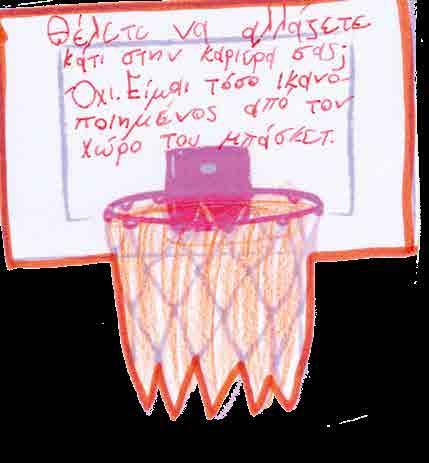 Θέλετε να αλλάξετε
κάτι στην καριέρα σας;
Όχι. Είμαι τόσο ικανο-
ποιημένος από τον
χώρο του μπάσκετ.